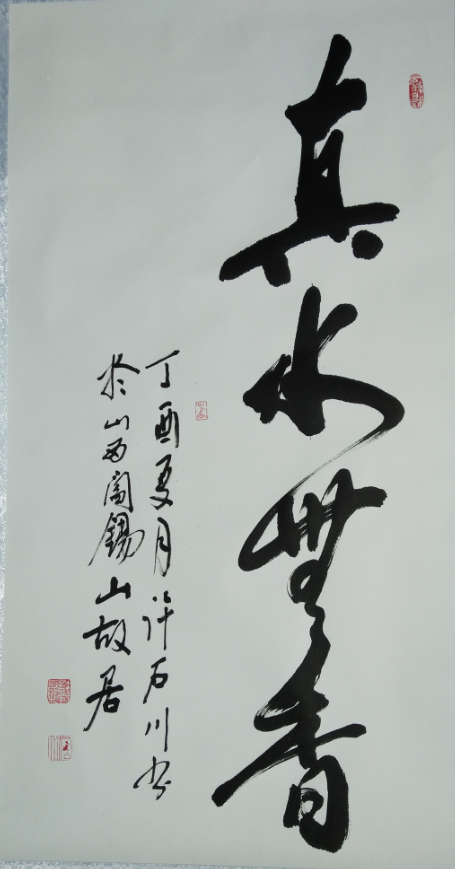 真水無香
丁酉夏月許石川书
於山西阎锡山故居